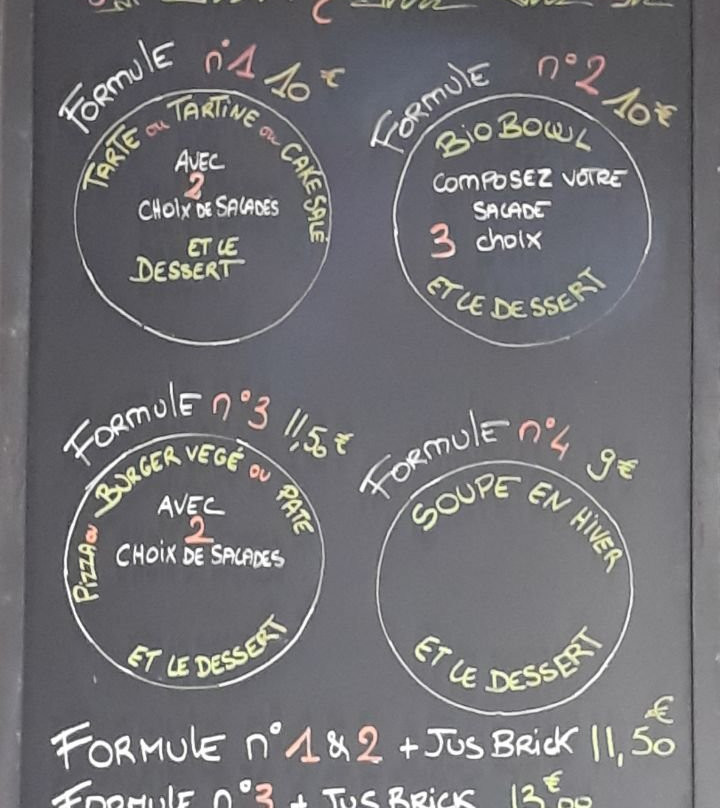 FORMULE n°1 10€
TARTE ou TARTINE ou CAKE SALÉ
AVEC
2
CHOIX DE SALADES
ET LE
DESSERT
FORMULE n°2 10€
BIO BOWL
COMPOSEZ VOTRE
SALADE
3 choix
ET LE DESSERT
FORMULE n°3 11,50€
PIZZA ou BURGER VEGÉ ou PATE
AVEC
2
CHOIX DE SALADES
ET LE DESSERT
FORMULE n°4 9€
SOUPE EN HIVER
ET LE DESSERT
FORMULE n° 1 & 2 + JUS BRICK 11,50€
FORMULE n°3 + JUS BRICK 13€00